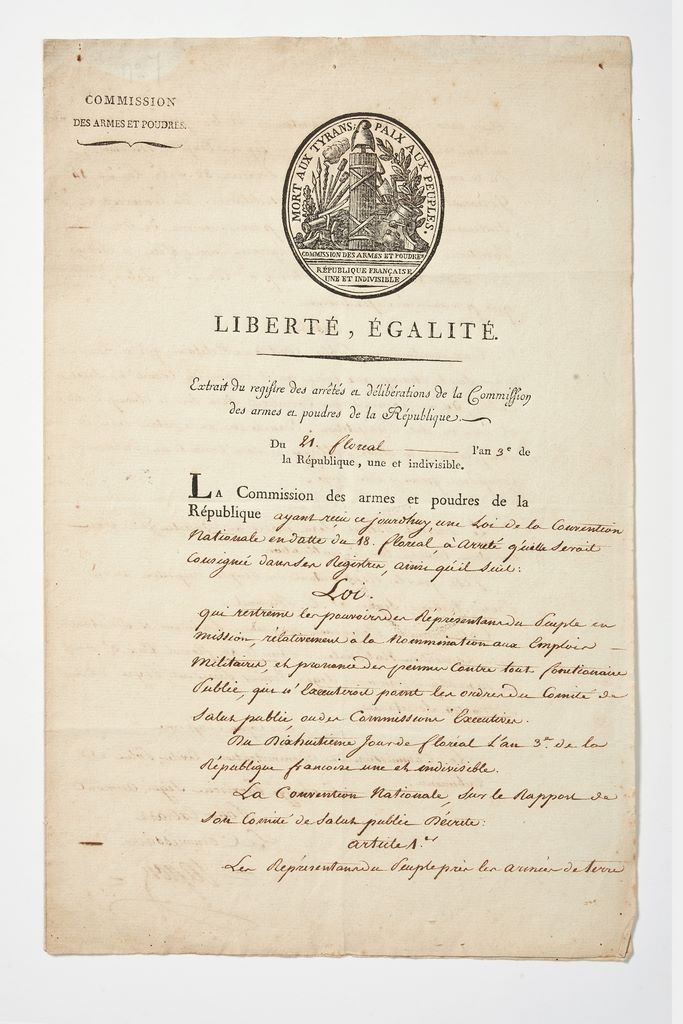 COMMISSION
DES ARMES ET POUDRES.
MORT AUX TYRANS, PAIX AUX PEUPLES.
COMMISSION DES ARMES ET POUDRES
RÉPUBLIQUE FRANÇAISE
UNE ET INDIVISIBLE
LIBERTÉ, ÉGALITÉ.
Extrait du registre des arrêtés et délibérations de la Commission
des armes et poudres de la République.
Du 21. floreal l'an 3e de
la République, une et indivisible.
LA Commission des armes et poudres de la
République ayant reçu ce jourdhuy, une Loi de la Convention
Nationale en datte du 18. floreal, à Arreté qu'elle Serait
Consignée dans Ses Registres, ainsi qu'il suit:
Loi.
qui restreint les pouvoirs des Répresentans du Peuple en
mission, rélativement à la Nommination aux Emplois
Militaires, et prononce des peinnes Contre tout fonctionaire
Public, qui n'Executeroit point les ordres du Comité de
Salut public, ou des Commissions Executives.
Du Dixhuitieme Jour de floréal L'an 3e. de la
République francoise une et indivisible.
La Convention Nationale, Sur le Rapport de
Son Comité de Salut public Décrete:
article 1.er
Les Représentans du Peuple près les armées de terre